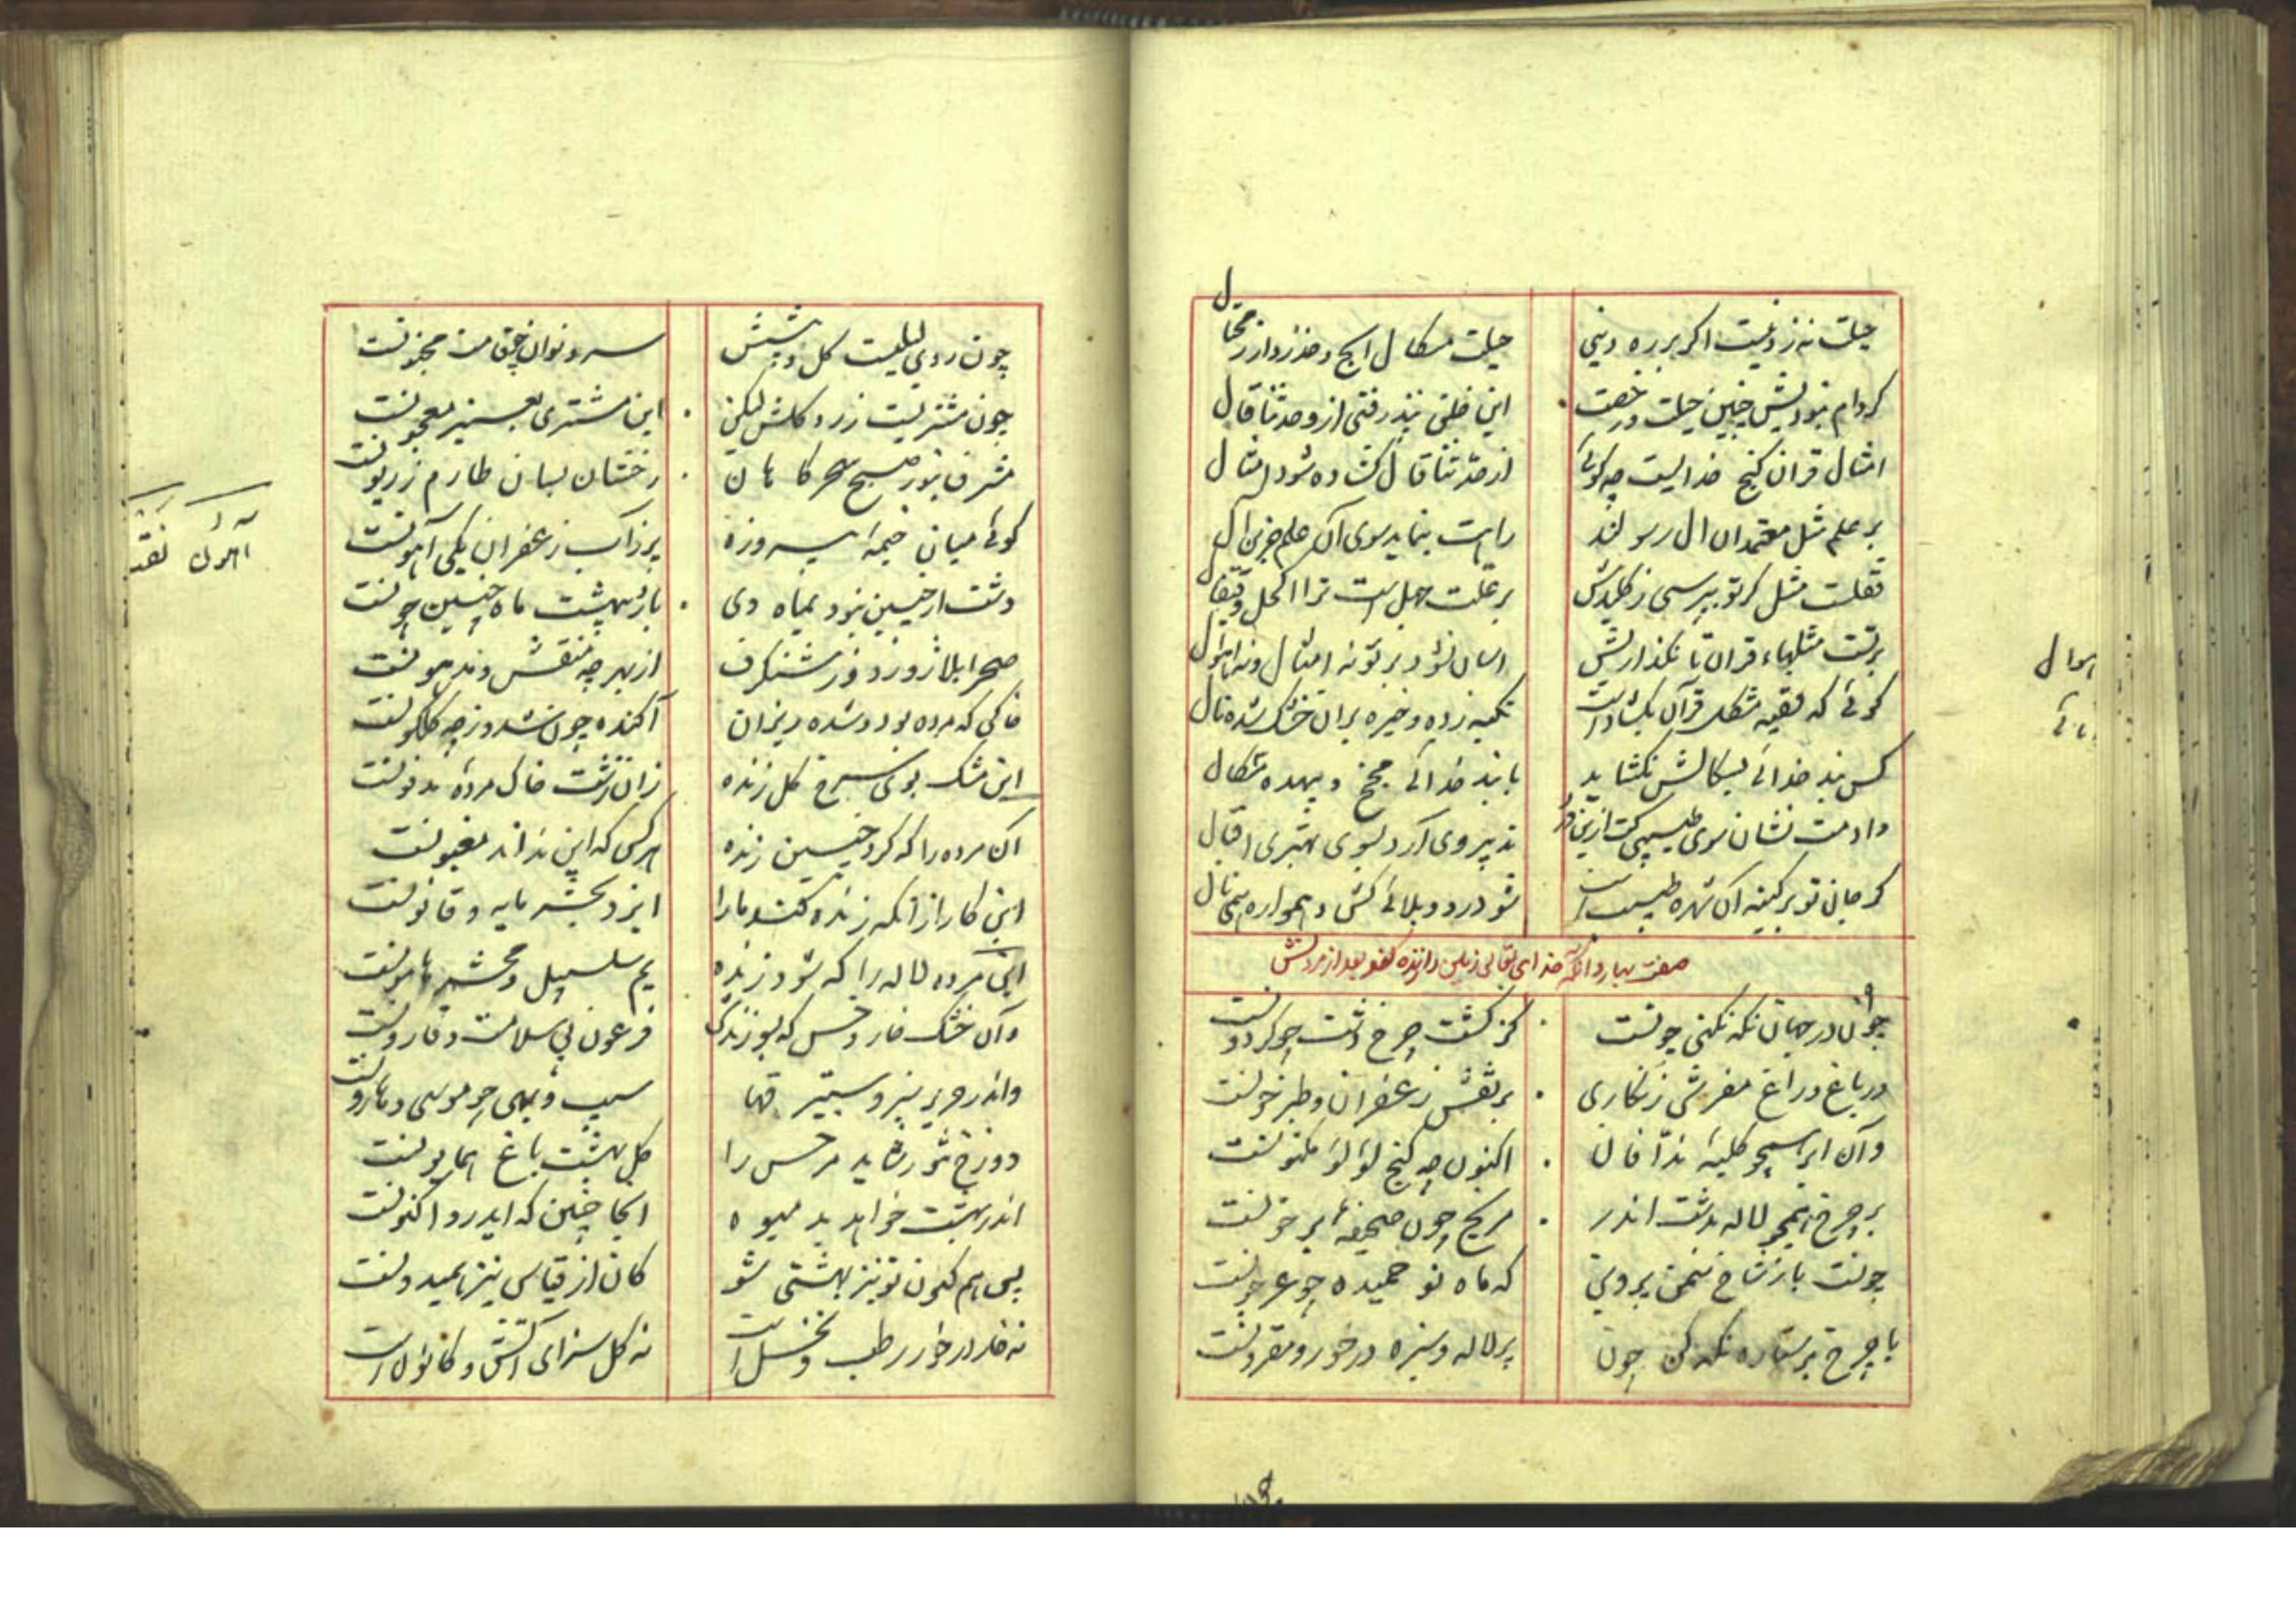 حیلت نه ز دینست اگر بر ره دینی
حیلت مسکال ایچ و حذر دار ز محتال
کر دام نبودیش چنین حیلت و رخصت
این خلق نپذرفتی ازو حدثنا قال
امثال قران کنج خدایست چه کوئی
از حدثنا قال کشاده شود امثال
بر علم مثل معتمدان ال رسولند
راهت بنماید سوی آن علم جزین ال
قفلست مثل کر تو بپرسی ز کلیدش
بر علت جهل است ترا اکحل و قیفال
برتست مثلهاء قران تا نکذاریش
اسان نشود بر تو نه امثال و نه اهوال
کوئی که فقیه مشکل قرآن بکشاداست
تکیه زده و خیره بران خشک شده نال
کس بند خدائی بسکالش نکشاید
با بند خدائی مچخ و بیهده مسکال
دادمت نشان سوی طبیبی کت ازین درد
تدبیر وی آرد بسوی بهتری اقبال
کر جان تو بر کینه آن شهره طبیب است
شو درد و بلائی کش و همواره همی نال
صفت بهار و آنکه خدای تعالی زمین را زنده کند بعد از مردنش
جوان در جهان نکه نکنی چونست
کز کشت چرخ دشت چو کردونست
در باغ و راغ مفرش زنکاری
بر نقش زعفران و طبرخونست
وآن ابر همچو کلبهٔ ندافان
اکنون چه کنج لؤلؤ مکنونست
بر چرخ همچو لاله بدشت اندر
مریخ چون صحیفهٔ پر خونست
چونست باز شاخ سمن پروین
که ماه نو خمیده چو عرجونست
با چرخ پر ستاره نکه کن چون
پر لاله و سبزه در خور و مقرونست
چون روی لیلیست کل و پیشش
سرو نوان چو قامت مجنونست
چون مشتریست زرد کلش لیکن
این مشتری بعنبر معجونست
مشرف بنور صبح سحرکاهان
رخشان بسان طارم زریونست
کوئی میان خیمهٔ پیروزه
پر زاب زعفران یکی آهونست
دشت ار چنین نبود بماه دی
باردیبهشت ماه چنین چونست
صحرا بلاژورد و زر شنکرف
از بهر چه منقش و مدهونست
خاکی که مرده بود و شده ریزان
آکنده چون شد و ز چه کلکونست
این مشک بوی سرخ کل زنده
زان زشت خاک مردهٔ مدفونست
آن مرده را که کرد چنین زنده
هر کس که این نداند مغبونست
این کار از آنکه زنده کند ما را
ایزد بحشر مایه و قانونست
این مرده لاله را که شود زنده
یم سلسبیل و محشر هامونست
وآن خشک خار و خس که بسوزندش
فرعون بی سلامت و قارونست
واندر حریر سبز و ستبرقها
سیب و بهی چو موسی و هارونست
دوزخ تنور شاید مر خس را
کل بهشت باغ همایونست
اندر بهشت خواهد بد میوه
آنجا چنین که ایدر و اکنونست
پس هم کنون تو نیز بهشتی شو
کان از قیاس نیز همیدونست
نه خار در خور رطب و نخل است
نه کل سزای آتش و کانون است
اهوال
آهون نقب